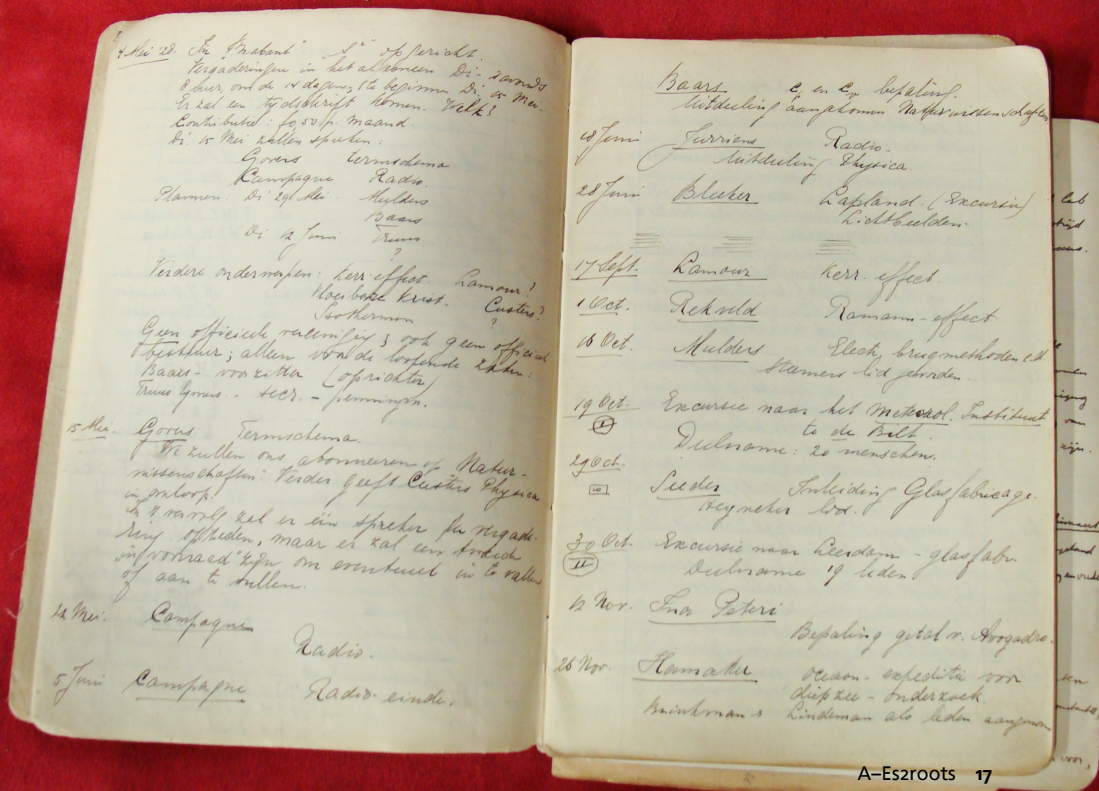 4 Mei '28. In "Brabant" opgericht.
Vergaderingen in het algemeen Di- 's avonds
8 uur, om de 14 dagen, te beginnen Di 15 Mei.
Er zal een tijdschrift komen.
Contributie: fo,50 p. maand.
Di 15 Mei zullen spreken:
Govers Termschema
Campagne Radio.
Plannen: Di 29 Mei: Mulders
Baars
Di 12 Juni Truus
?
Verdere onderwerpen: Kerr-effect. Lamour?
Vloeibare Krist. Custers?
Isothermen ?
Geen officieele vereeniging & ook geen officieel
bestuur; alleen voor de loopende zaken:
Baars - voorzitter (oprichter)
Truus Govers. - secr. - penningm.
15 Mei. Govers Termschema.
We zullen ons abonneeren op Natur-
wissenschaften. Verder geeft Custers Physica
in omloop.
In 't vervolg zal er één spreker per vergade-
ring optreden, maar er zal een tweede
"in voorraad" zijn om eventueel in te vallen
of aan te vullen.
22 Mei. Campagne
Radio.
5 Juni Campagne Radio-einde.
Baars cp en cv bepaling.
Uitdeeling aangekomen Naturwissenschaften
18 Juni Jurriens Radio.
Uitdeeling Physica.
28 Juni Bleeker Lapland. (Excursie)
Lichtbeelden.
17 Sept. Lamour Kerr. effect.
1 Oct. Rekveld Ramann-effect.
16 Oct. Mulders Electr. brugmethoden
Steemers lid geworden.
19 Oct. Excursie naar het Meteorol. Instituut
I te de Bilt.
Deelname: 20 menschen.
29 Oct. Seeder Inleiding Glasfabricage.
Heyneker lid.
30 Oct. Excursie naar Leerdam - glasfabr.
II Deelname 19 leden
12 Nov. Ina Peters
Bepaling getal v. Avogadro.
26 Nov. Hamaker oceaan-expeditie voor
diepzee-onderzoek.
Brinkman & Lindeman als leden aangenomen
A–Es2roots 17